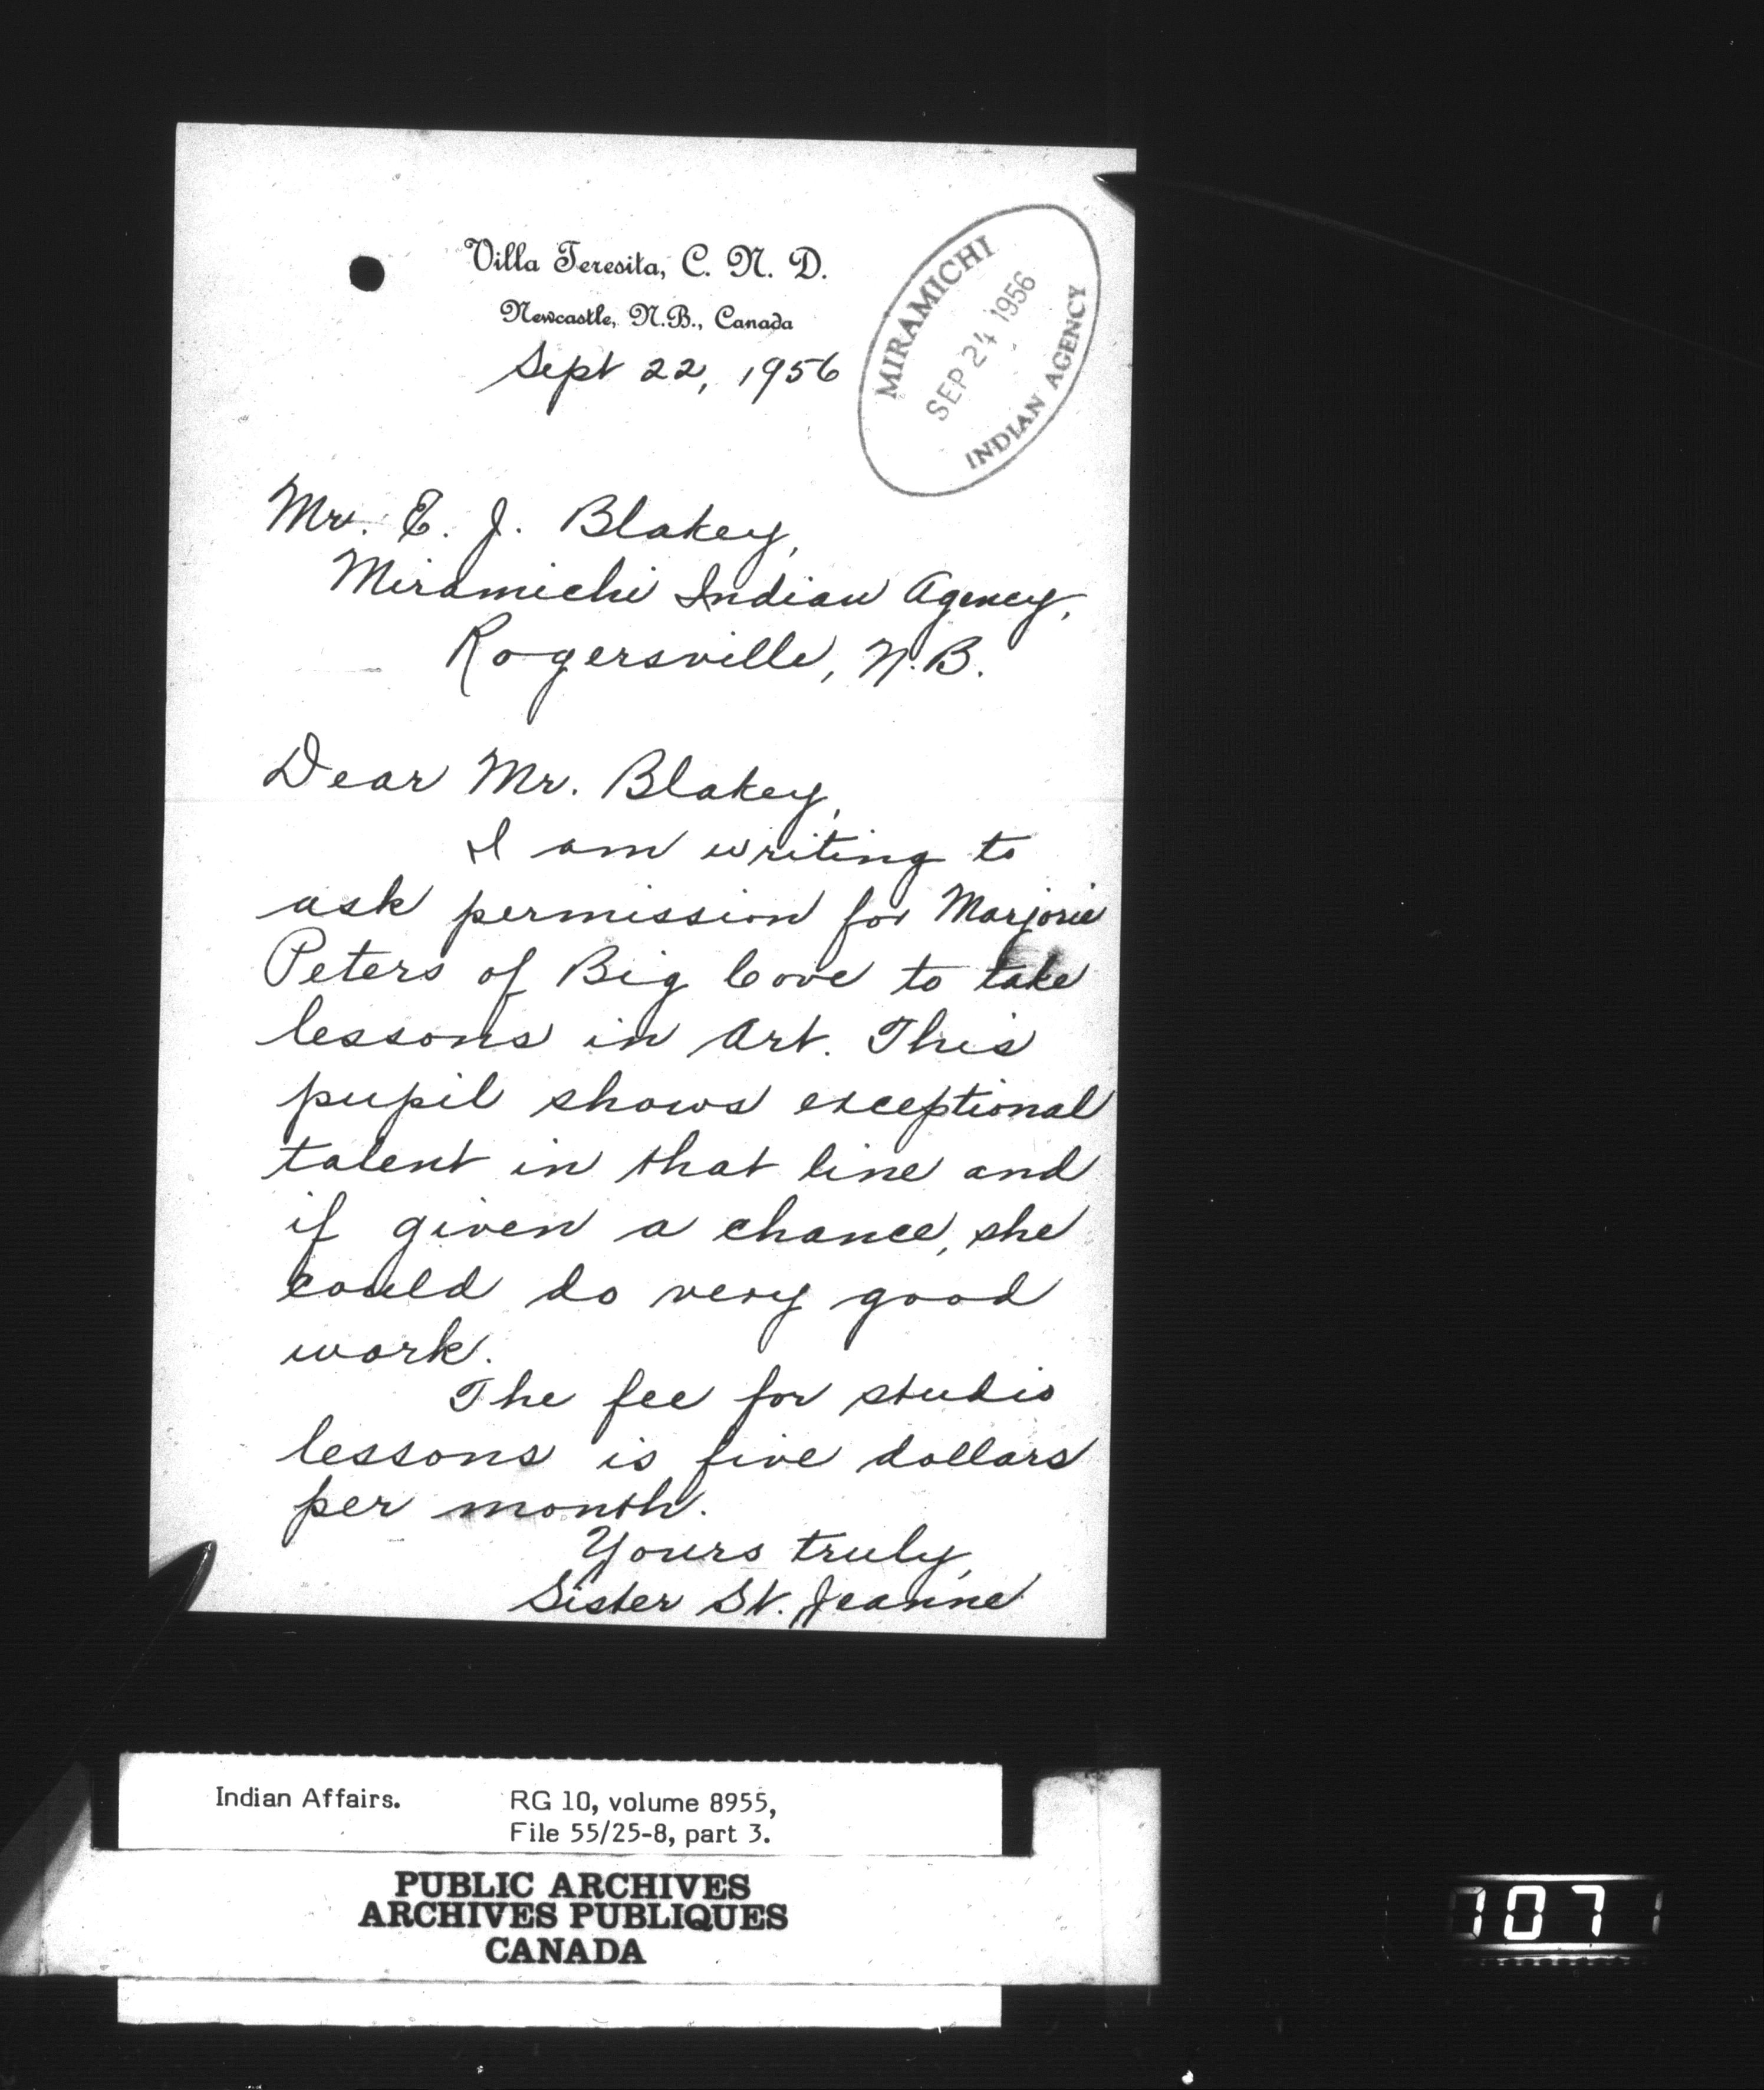 Villa Teresita, C. N. D.
Newcastle, N.B., Canada
Sept 22, 1956
MIRAMICHI
SEP 24 1956
INDIAN AGENCY
Mr. E. J. Blakey,
Miramichi Indian Agency,
Rogersville, N.B.
Dear Mr. Blakey,
I am writing to
ask permission for Marjorie
Peters of Big Cove to take
lessons in Art. This
pupil shows exceptional
talent in that line and
if given a chance, she
could do very good
work.
The fee for studio
lessons is five dollars
per month.
Yours truly,
Sister St. Jeanne
Indian Affairs. RG 10, volume 8955,
File 55/25-8, part 3.
PUBLIC ARCHIVES
ARCHIVES PUBLIQUES
CANADA